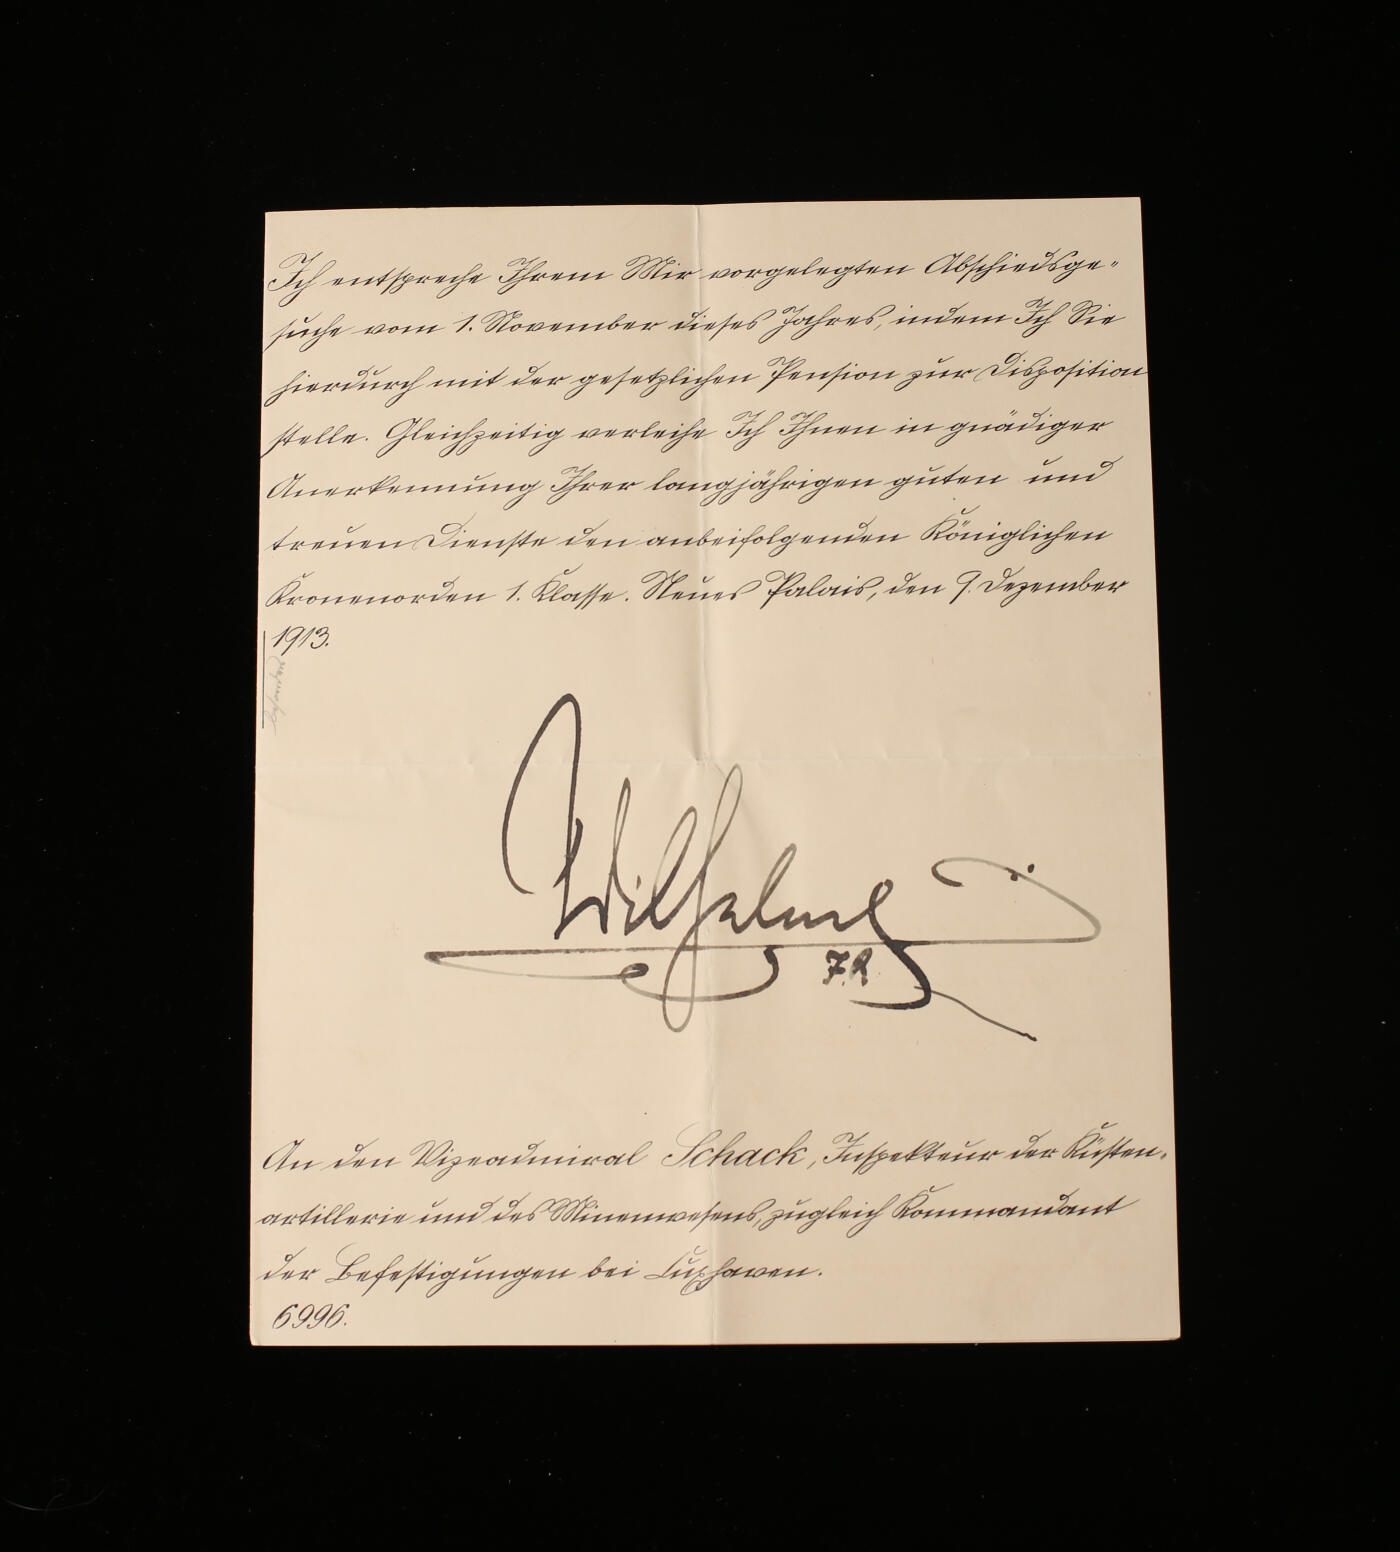 Ich entspreche Ihrem Mir vorgelegten Abschiedsge-
suche vom 1. November dieses Jahres, indem Ich Sie
hierdurch mit der gesetzlichen Pension zur Disposition
stelle. Gleichzeitig verleihe Ich Ihnen in gnädiger
Anerkennung Ihrer langjährigen guten und
treuen Dienste den anbeifolgenden Königlichen
Kronenorden 1. Klasse. Neues Palais, den 9. Dezember
1913.
Wilhelm
I.R.
An den Vizeadmiral Schack, Inspekteur der Küsten-
artillerie und des Minenwesens, zugleich Kommandant
der Befestigungen bei Cuxhaven.
6996.